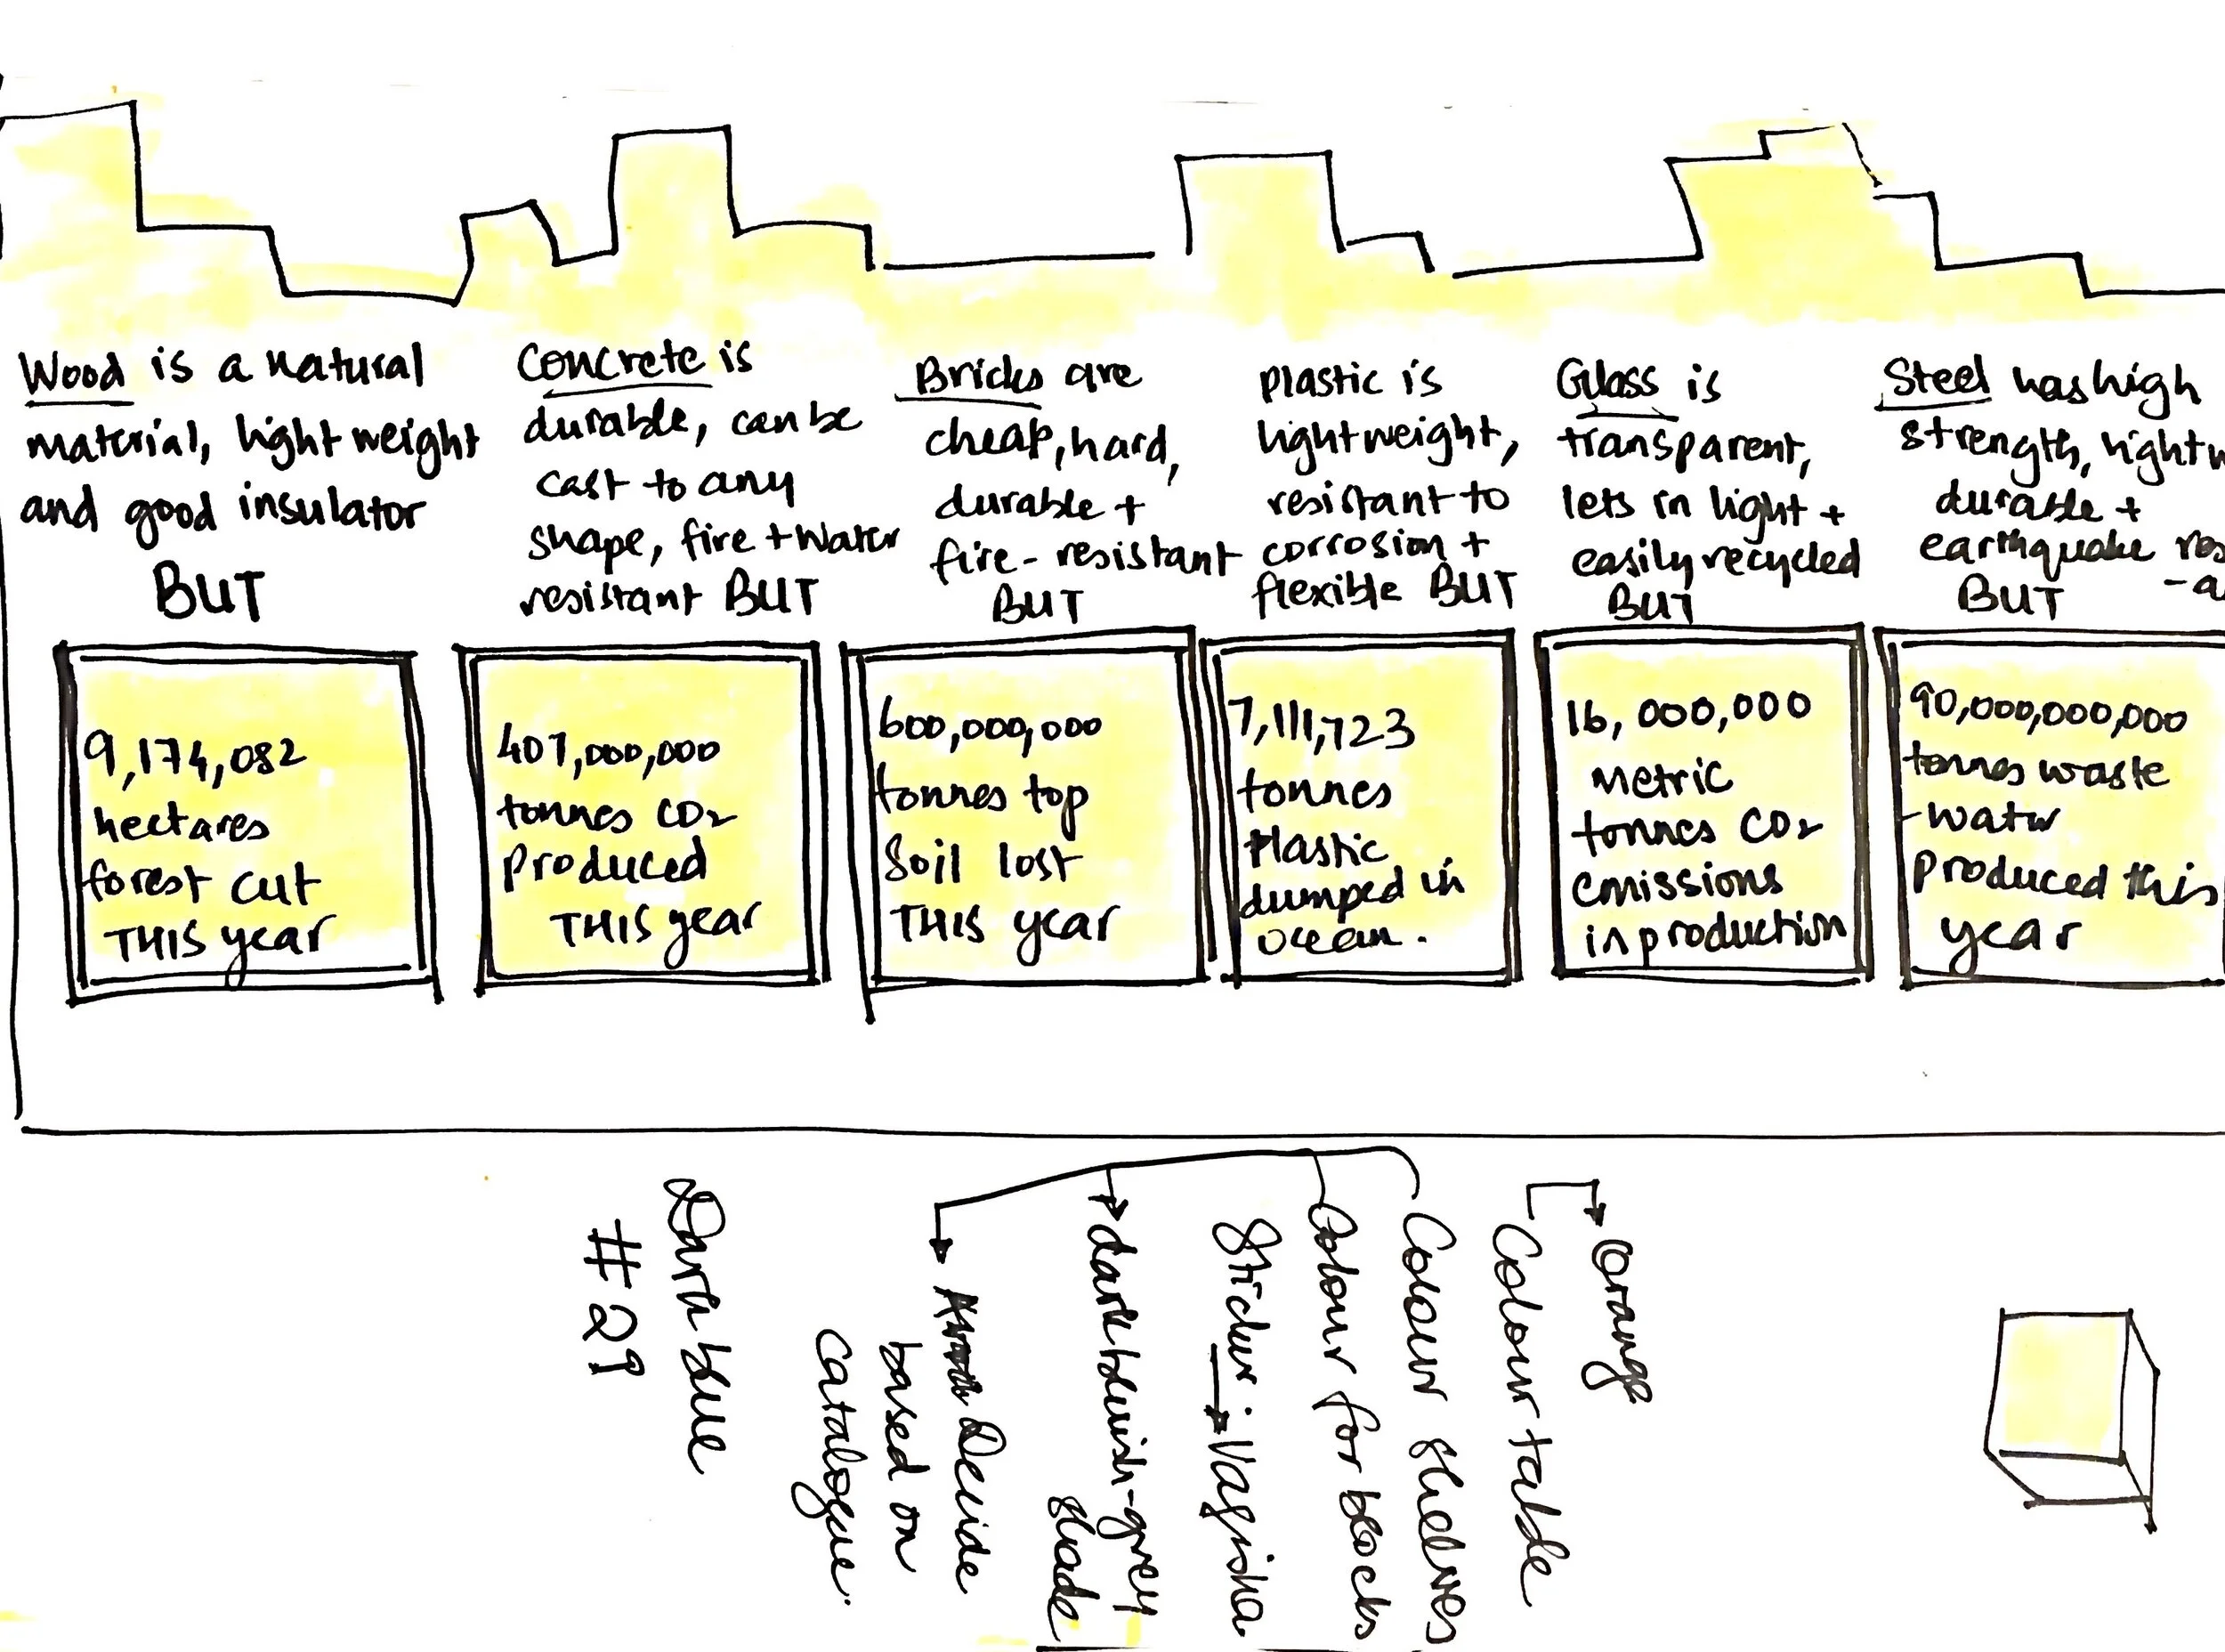 Wood is a natural
material, light weight
and good insulator
BUT
Concrete is
durable, can be
cast to any
shape, fire + water
resistant BUT
Bricks are
cheap, hard,
durable +
fire-resistant
BUT
Plastic is
lightweight,
resistant to
corrosion +
flexible BUT
Glass is
transparent,
lets in light +
easily recycled
BUT
Steel has high
strength,
durable +
earthquake
BUT
9,174,082
hectares
forest cut
THIS year
407,000,000
tonnes CO2
produced
THIS year
600,000,000
tonnes top
soil lost
THIS year
7,111,723
tonnes
plastic
dumped in
ocean.
16,000,000
metric
tonnes CO2
emissions
in production
90,000,000,000
tonnes waste
-water
produced this
year
Orange
Colour table
Colour shelves
Colour for blocks
Sticker → Vagisha
dark bluish-grey
shade
Decide
based on
catalogue.
Dark blue
#21